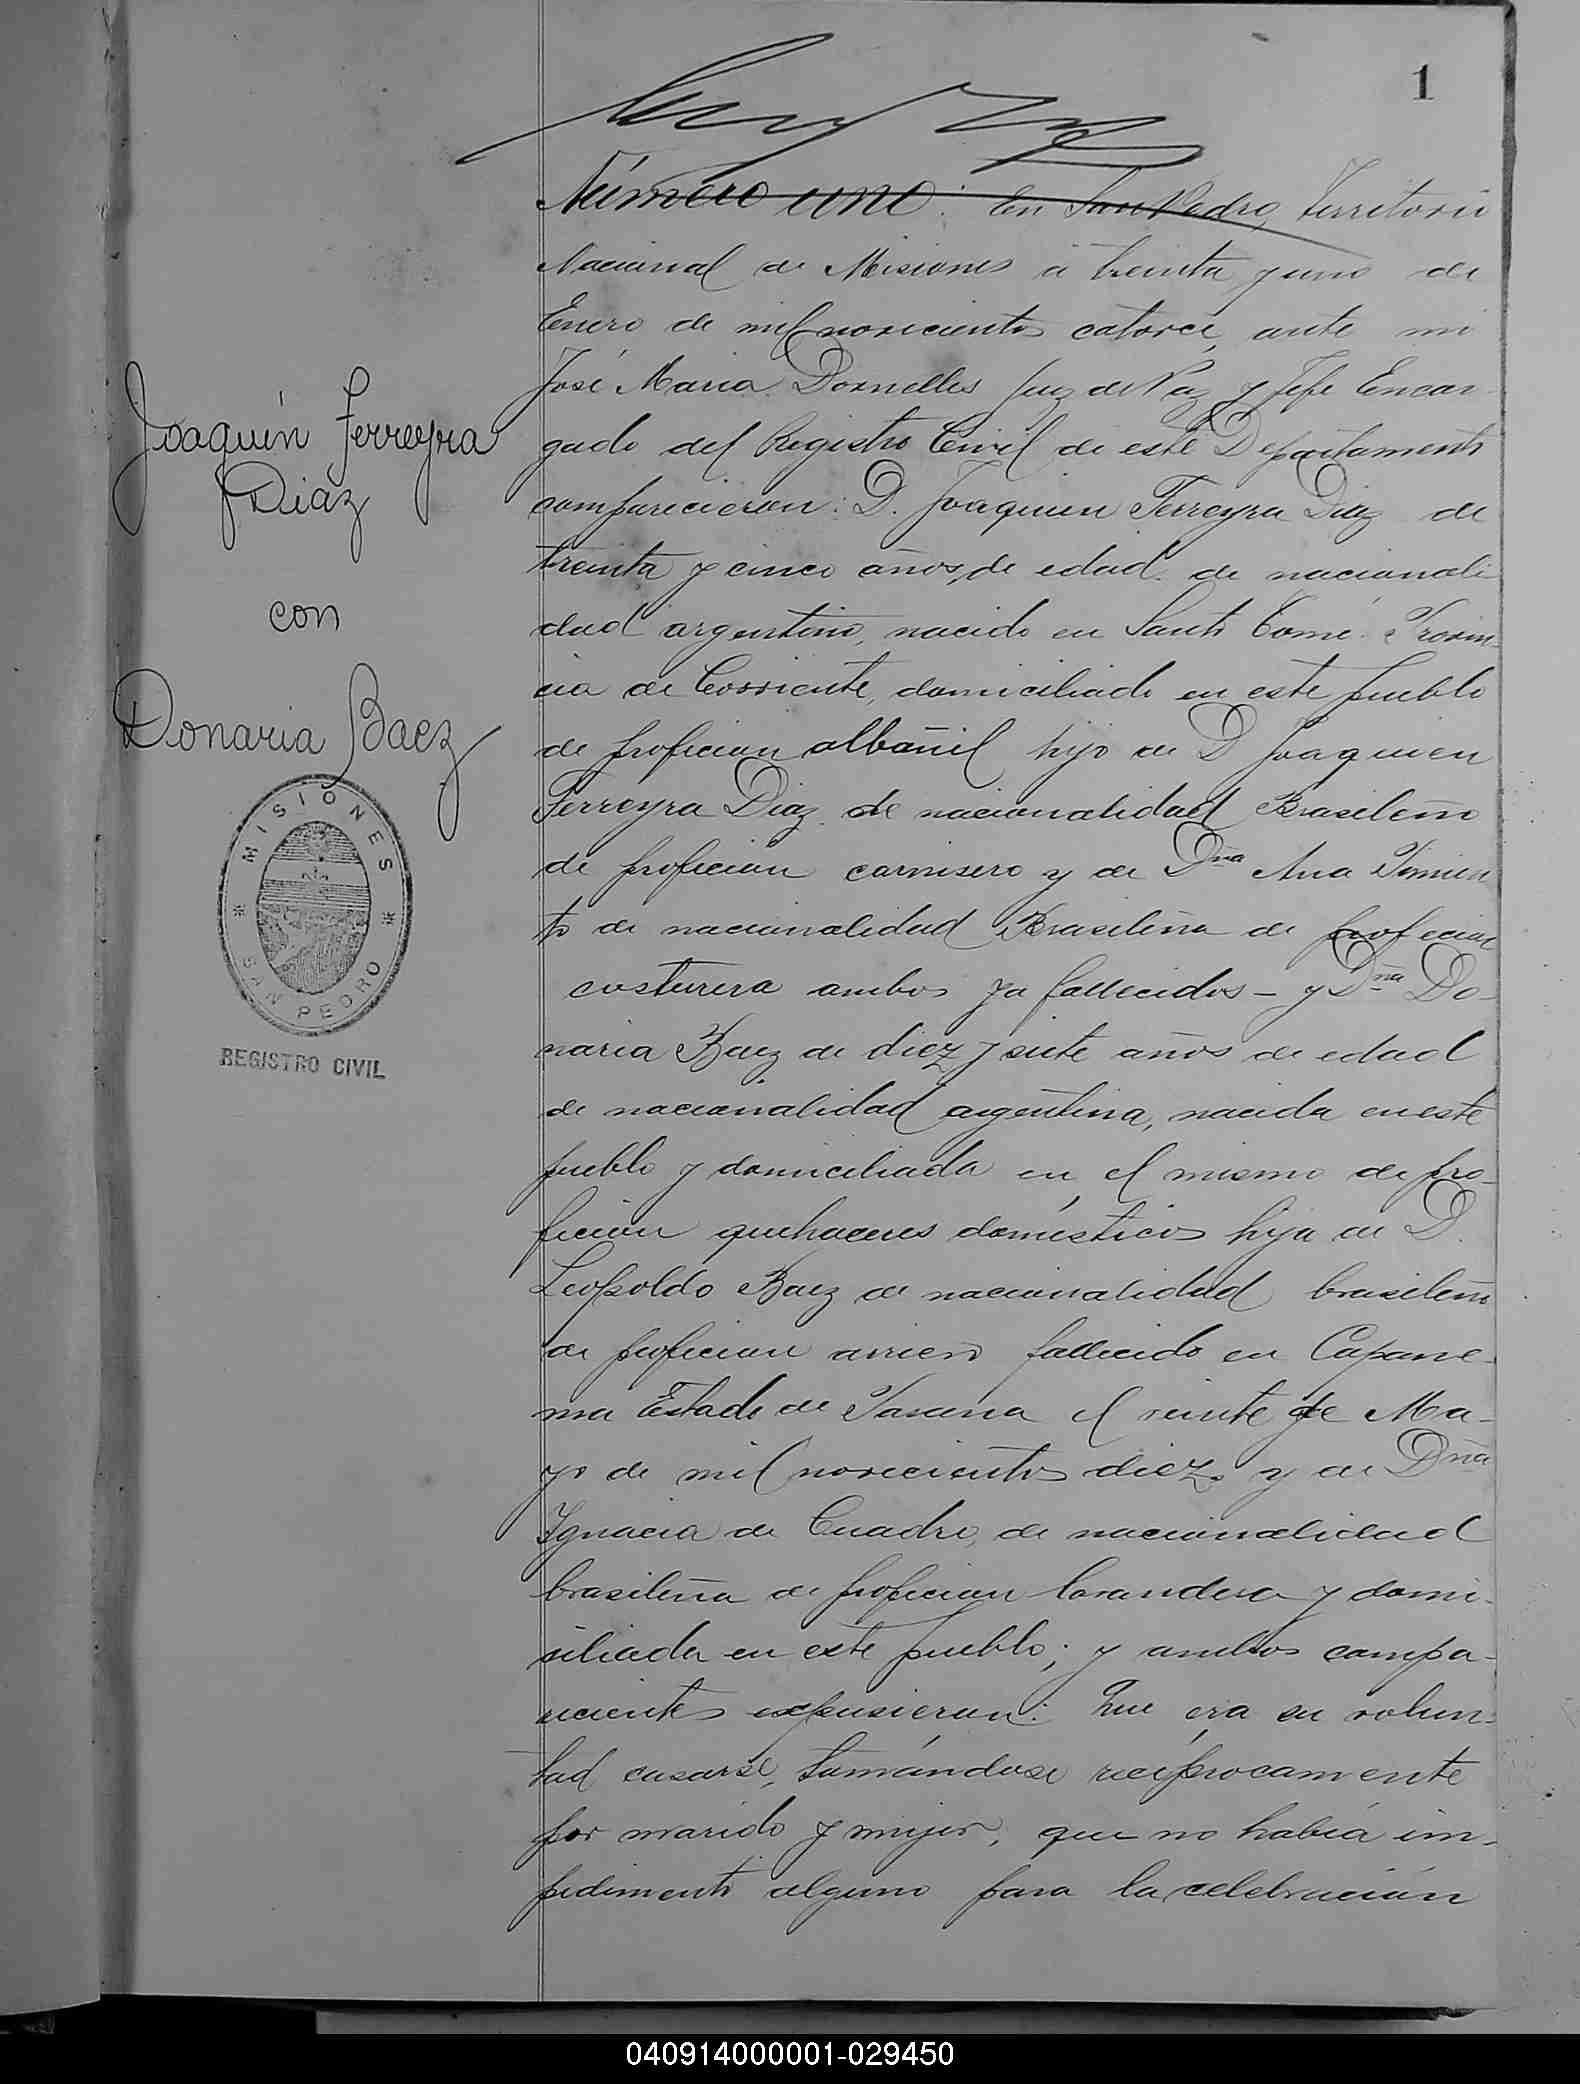 1
Número uno: En San Pedro, Territorio
Nacional de Misiones á treinta y uno de
Enero de mil novecientos catorce, ante mi
José Maria Dornelles Juez de Paz y Jefe Encar-
gado del Registro Civil de este Departamento
comparecieron: D. Joaquien Ferreyra Diaz de
treinta y cinco años, de edad. de nacionali-
dad argentino, nacido en Santo Tomé. Provin-
cia de Corriente, domiciliado en este pueblo
de profecion albañil hijo de D Joaquien
Ferreyra Diaz. de nacionalidad Brasileño
de profecion carnisero y de Dña Ana Pimien
to de nacionalidad Brasileña de profecion
costurera ambos ya fallecidos - y Dña Do-
naria Baez de diez y siete años de edad
de nacionalidad argentina, nacida en este
pueblo y domiciliada en el mismo de pro-
fecion quehaceres domésticos hija de D.
Leopoldo Baez de nacionalidad brasileño
de profecion arriero fallecido en Capane-
ma Estado de Parana el veinte de Ma-
yo de mil novecientos diez. y de Dña
Ignacia de Cuadro, de nacionalidad
brasileña de profecion lavandera y domi-
ciliada en este pueblo; y ambos compa-
recientes expusieron: Que era su volun-
tad casarse, tomándose recíprocamente
por marido y mujer, que no había im-
pedimento alguno para la celebración
Joaquín Ferreyra
Diaz
con
Donaria Baez
MISIONES
SAN PEDRO
REGISTRO CIVIL
040914000001-029450